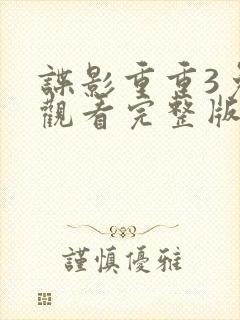 諜影重重3
觀看完整版
謹慎優雅